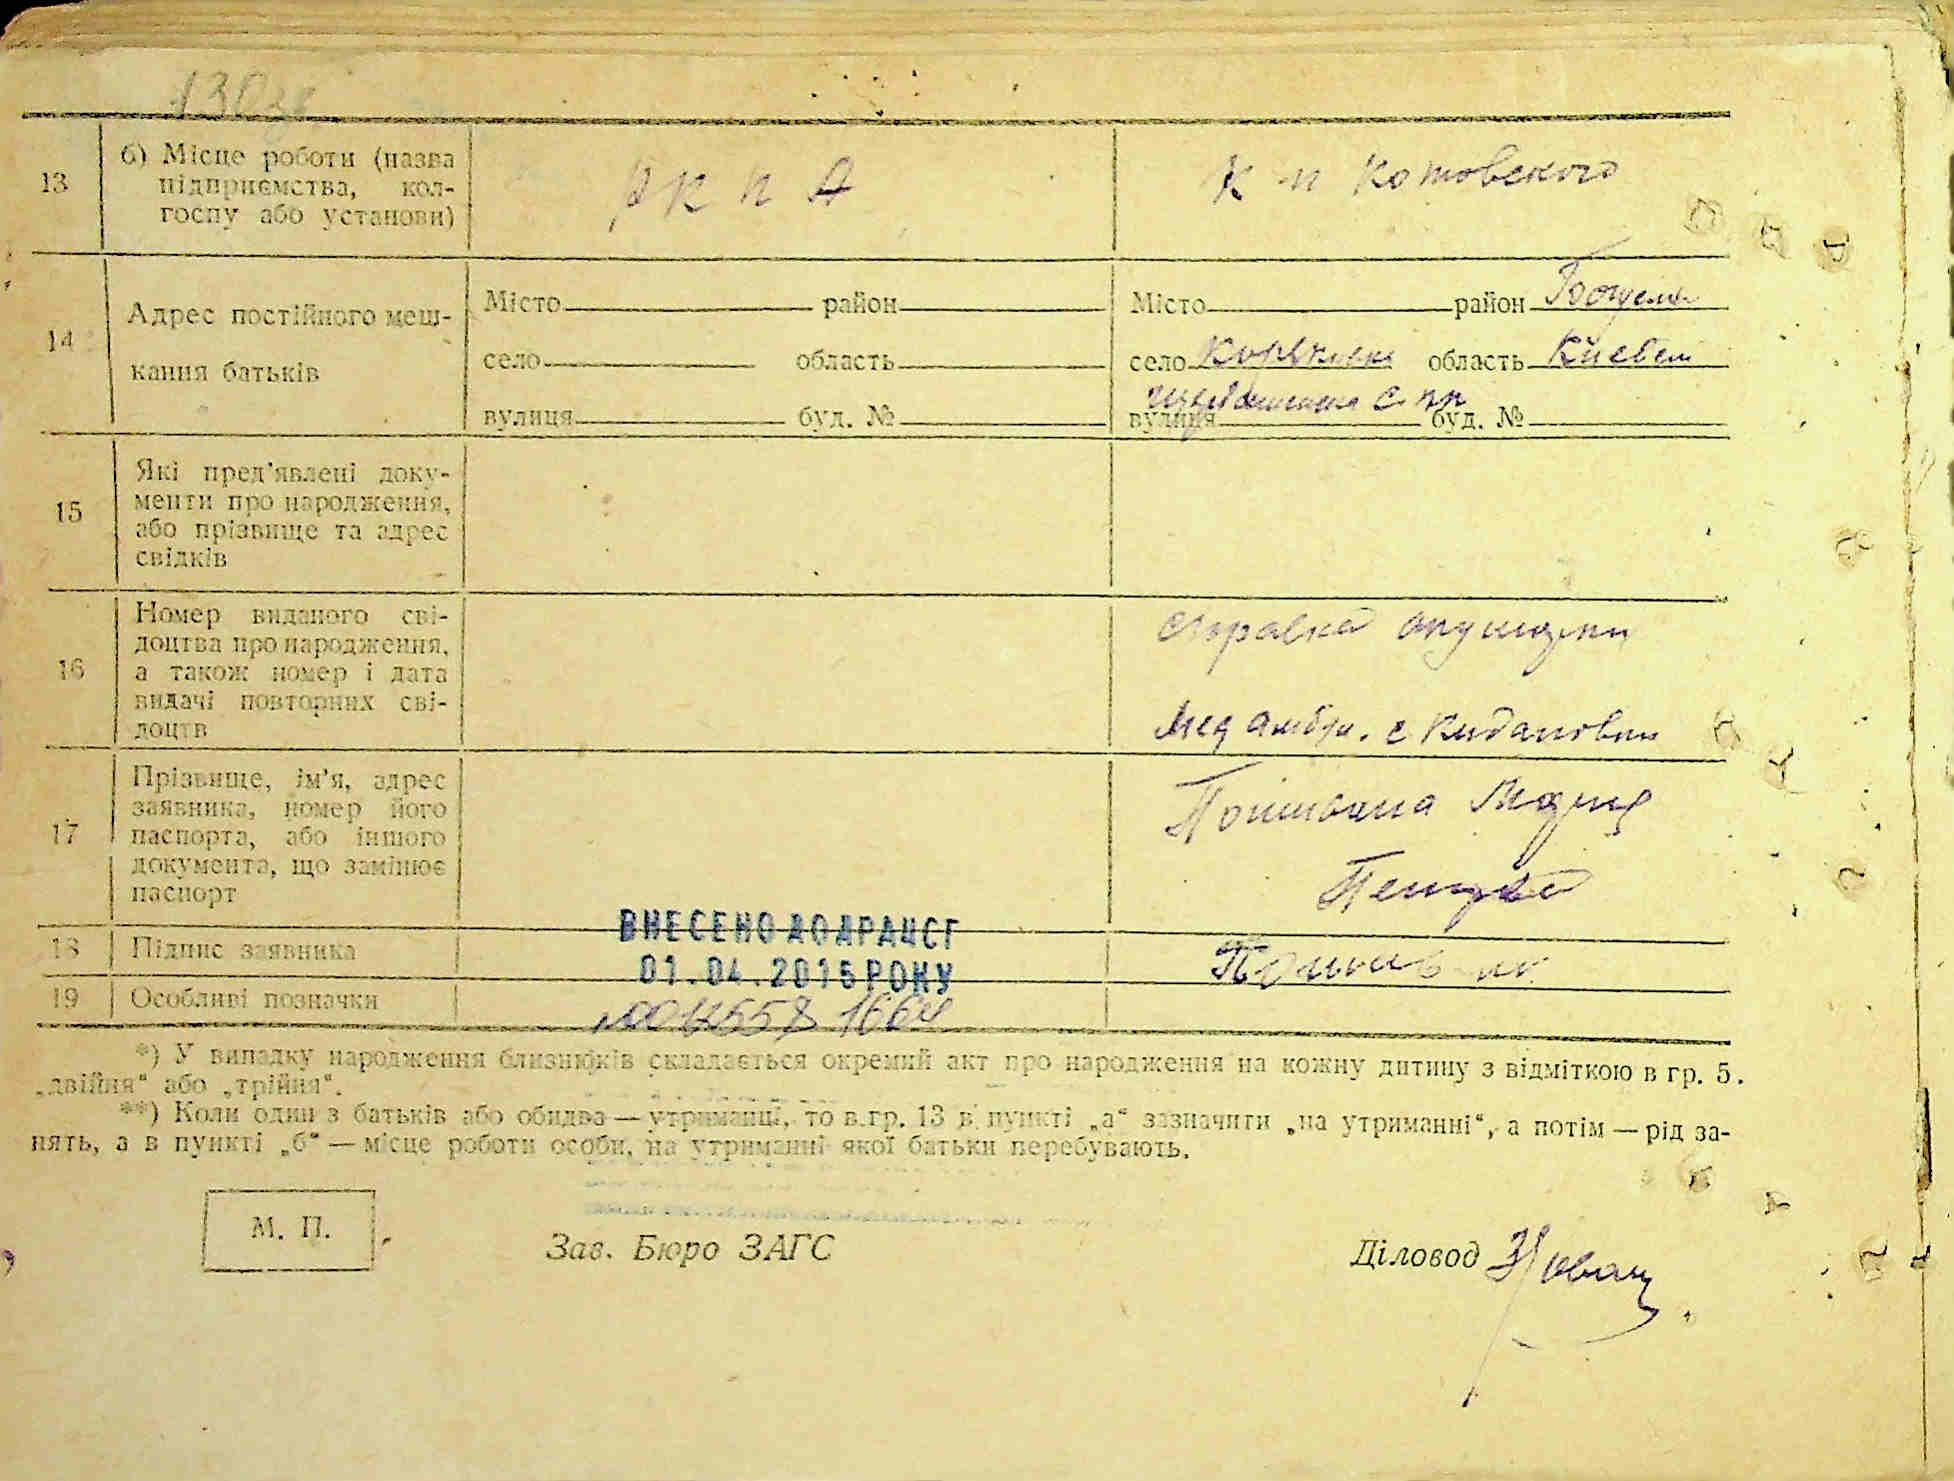 13
б) Місце роботи (назва
підприємства, кол-
госпу або установи)
РККА
к п Котовского
14
Адрес постійного меш-
кання батьків
Місто район
село область
вулиця буд. №
Місто район
село область Киевск
вулиця буд. №
15
Які пред'явлені доку-
менти про народження,
або прізвище та адрес
свідків
16
Номер виданого сві-
доцтва про народження,
а також номер і дата
видачі повторних сві-
доцтв
справка
Мед амбул. с Кидановки
17
Прізвище, ім'я, адрес
заявника, номер його
паспорта, або іншого
документа, що замінює
паспорт
18
Підпис заявника
ВНЕСЕНО ДО ДРАЦСГ
01.04.2015 РОКУ
19
Особливі позначки
*) У випадку народження близнюків складається окремий акт про народження на кожну дитину з відміткою в гр. 5.
„двійня“ або „трійня“.
**) Коли один з батьків або обидва — утриманці, то в гр. 13 в пункті „а“ зазначити „на утриманні“, а потім — рід за-
нять, а в пункті „б“ — місце роботи особи, на утриманні якої батьки перебувають.
М. П.
Зав. Бюро ЗАГС
Діловод